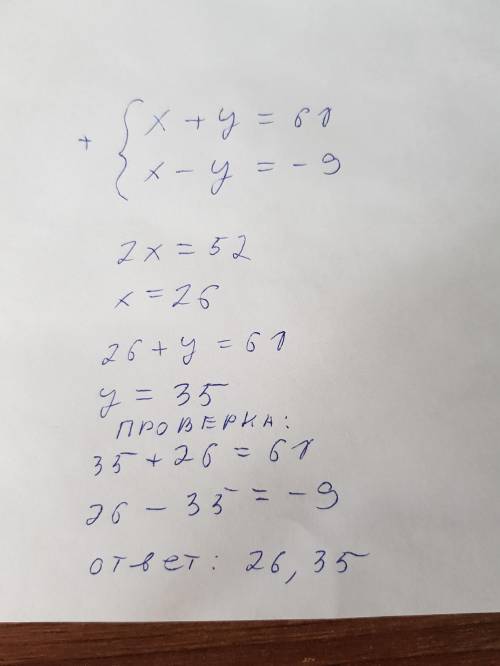 + { x + y = 61
x - y = -9
2x = 52
x = 26
26 + y = 61
y = 35
ПРОВЕРКА:
35 + 26 = 61
26 - 35 = -9
ответ: 26, 35